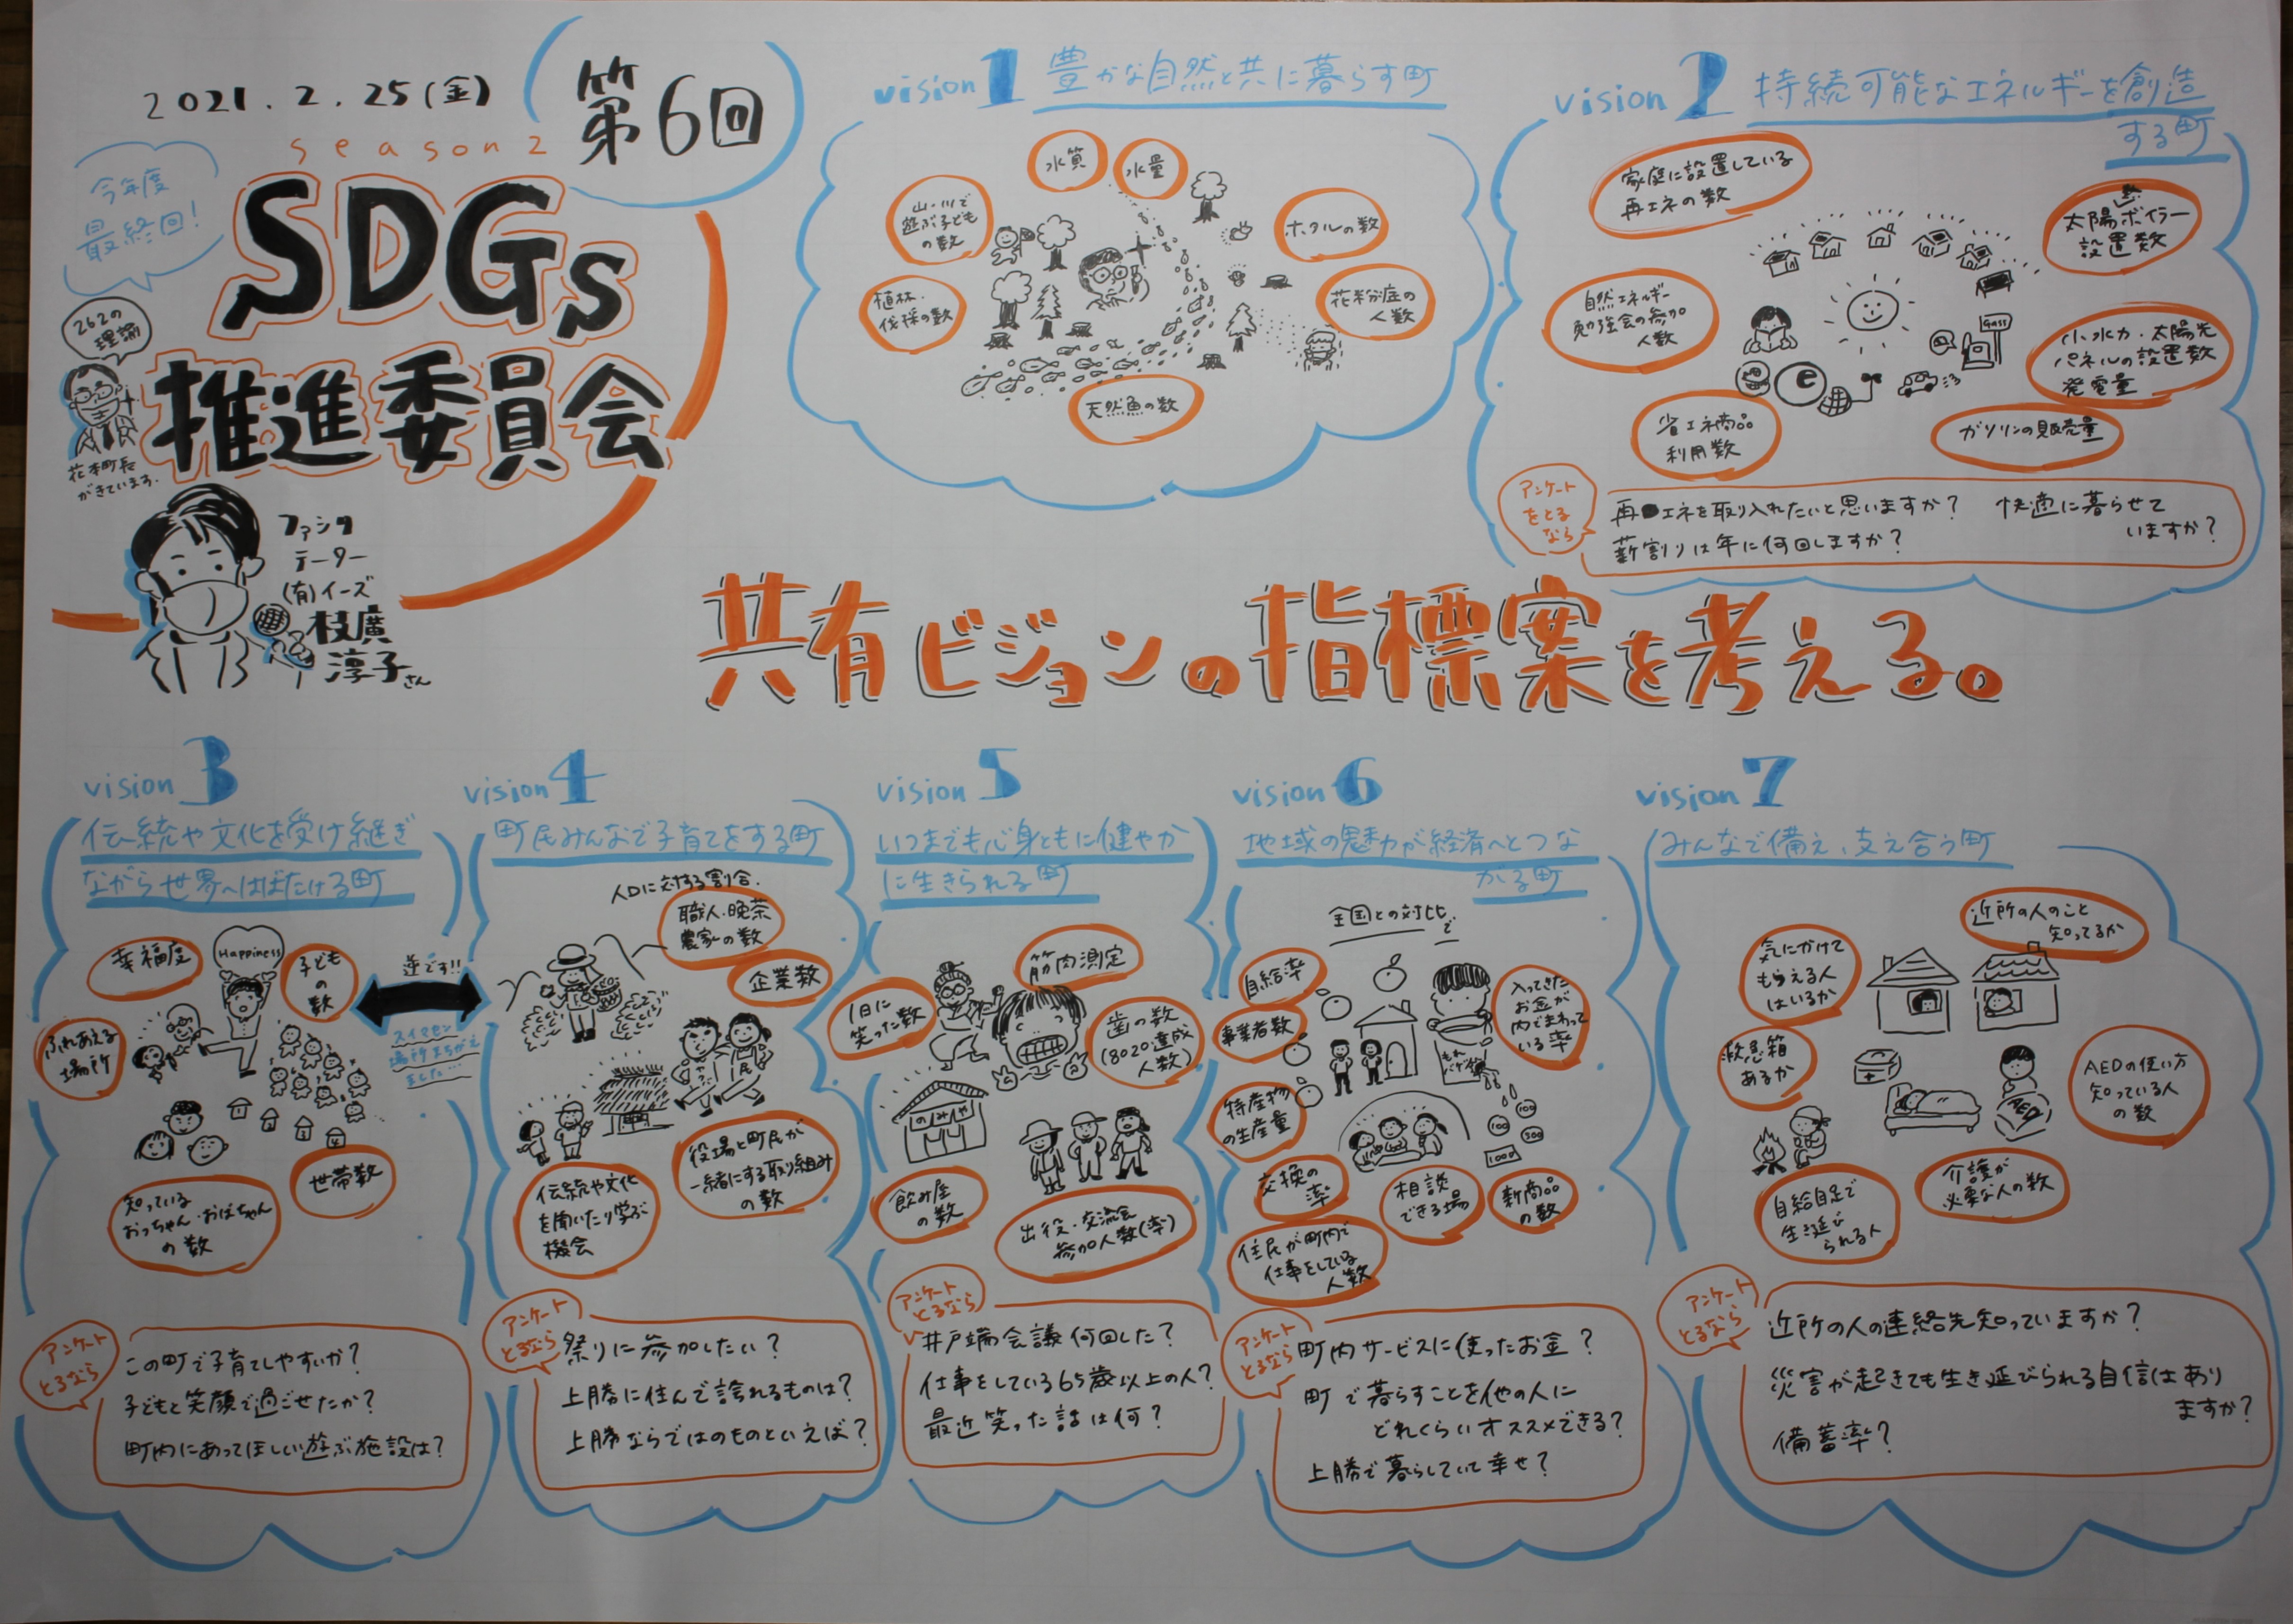 2021.2.25(金)
season2
第6回
今年度
最終回!
SDGs
推進委員会
262の
理論
花本町長
がきています.
ファシリ
テーター
(有)イーズ
枝廣
淳子さん
共有ビジョンの指標案を考える。
vision1 豊かな自然と共に暮らす町
水質
水量
山・川で
遊ぶ子ども
の数
ホタルの数
植林・
伐採の数
花粉症の
人数
天然魚の数
vision2 持続可能なエネルギーを創造
する町
家庭に設置している
再エネの数
太陽ボイラー
設置数
自然エネルギー
勉強会の参加
人数
Gass
e
小水力・太陽光
パネルの設置数
発電量
省エネ商品
利用数
ガソリンの販売量
アンケート
をとる
なら
再エネを取り入れたいと思いますか?
快適に暮らせて
いますか?
薪割りは年に何回しますか?
vision3
伝統や文化を受け継ぎ
ながら世界へはばたける町
幸福度
Happiness
子ども
の数
ふれあえる
場所
知っている
おっちゃん・おばちゃん
の数
世帯数
逆です!!
スイマセン
場所まちがえ
ました…
アンケート
とるなら
この町で子育てしやすいか?
子どもと笑顔で過ごせたか?
町内にあってほしい遊ぶ施設は?
vision4
町民みんなで子育てをする町
人口に対する割合.
職人・晩茶
農家の数
企業数
役場と町民が
一緒にする取り組み
の数
伝統や文化
を聞いたり学ぶ
機会
アンケート
とるなら
祭りに参加したい?
上勝に住んで誇れるものは?
上勝ならではのものといえば?
vision5
いつまでも心身ともに健やか
に生きられる町
筋肉測定
1日に
笑った数
歯の数
(8020達成
人数)
のみや
飲み屋
の数
出役・交流会
参加人数(率)
アンケート
とるなら
井戸端会議何回した?
仕事をしている65歳以上の人?
最近笑った話は何?
vision6
地域の魅力が経済へとつな
がる町
全国との対比
で
自給率
事業者数
入ってきた
お金が
内でまわって
いる率
特産物
の生産量
100
100
500
1000
交換の
率
相談
できる場
新商品
の数
住民が町内で
仕事をしている
人数
アンケート
とるなら
町内サービスに使ったお金?
町で暮らすことを他の人に
どれくらいオススメできる?
上勝で暮らしていて幸せ?
vision7
みんなで備え、支え合う町
近所の人のこと
知ってるか
気にかけて
もらえる人
はいるか
救急箱
あるか
AEDの使い方
知っている人
の数
AED
自給自足で
生き延び
られる人
介護が
必要な人の数
アンケート
とるなら
近所の人の連絡先知っていますか?
災害が起きても生き延びられる自信はあり
ますか?
備蓄率?